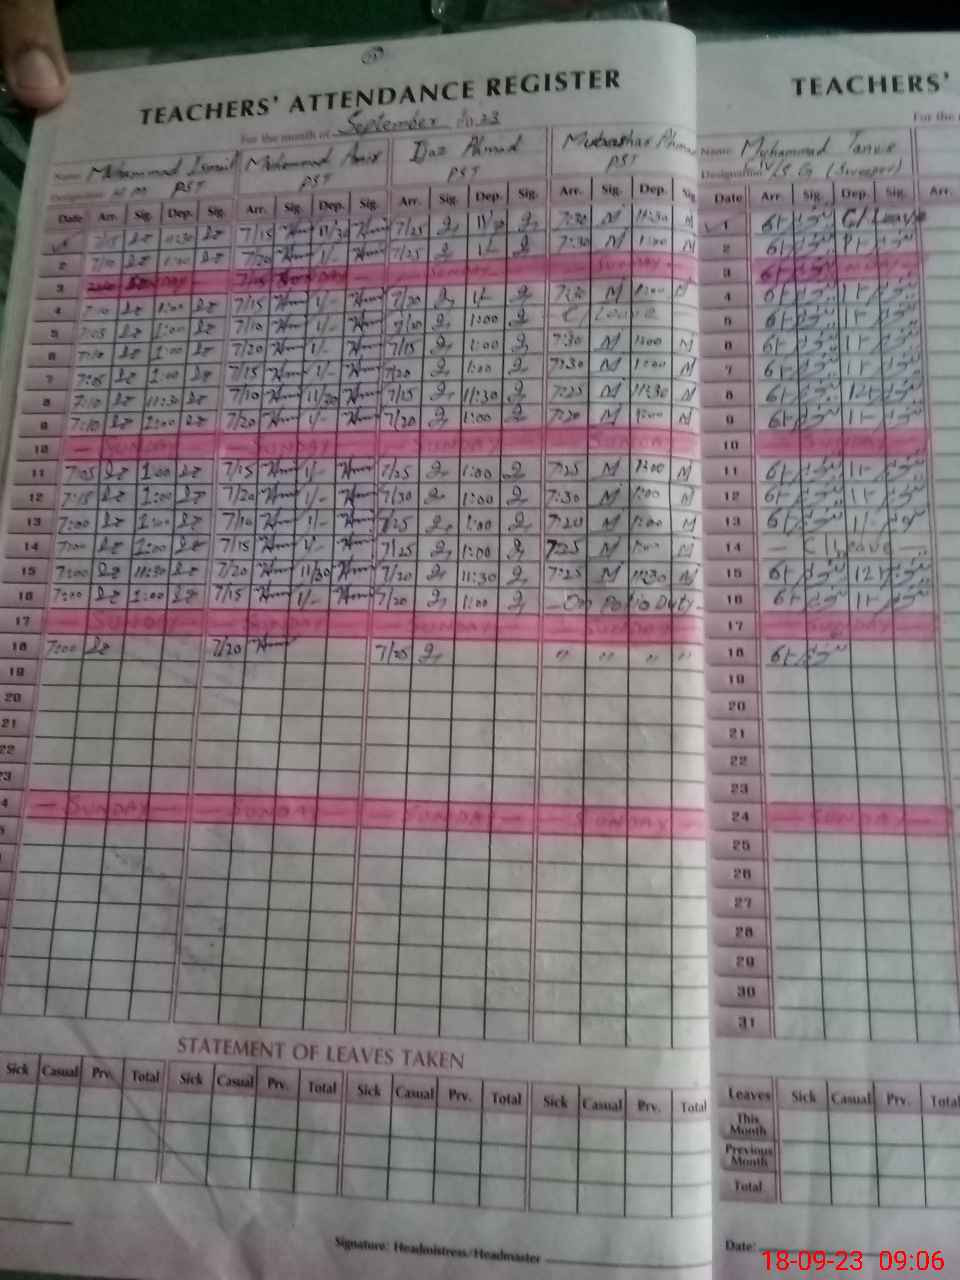 TEACHERS' ATTENDANCE REGISTER
For the month of September 2023
Name Muhammad Ismail Muhammad Anis Ijaz Ahmad Mubashar Ahmad
Designation H M PST PST PST PST
Date Arr. Sig. Dep. Sig. Arr. Sig. Dep. Sig. Arr. Sig. Dep. Sig. Arr. Sig. Dep. Sig.
1 7/15 11:30 7/15 11/30 7/25 11/30 7:30 M 11:30 M
2 7/10 1:00 7/20 1/- 7/25 1/- 7:30 M 1:00 M
3 SUNDAY SUNDAY SUNDAY SUNDAY
4 7:10 1:00 7/15 1/- 7/20 1/- 7:30 M 1:00 M
5 7:05 1:00 7/10 1/- 7/20 1:00 C/Leave
6 7:10 1:00 7/20 1/- 7/15 1:00 7:30 M 1:00 M
7 7:05 1:00 7/15 1/- 7/20 1:00 7:30 M 1:00 M
8 7:10 11:30 7/10 11/30 7/15 11:30 7:25 M 11:30 M
9 7:10 1:00 7/20 1/- 7/20 1:00 7:20 M 1:00 M
10 SUNDAY SUNDAY SUNDAY SUNDAY
11 7:05 1:00 7/15 1/- 7/25 1:00 7:25 M 1:00 M
12 7:15 1:00 7/20 1/- 7/30 1:00 7:30 M 1:00 M
13 7:00 1:00 7/10 1/- 7/25 1:00 7:20 M 1:00 M
14 7:00 1:00 7/15 1/- 7/25 1:00 7:25 M 1:00 M
15 7:00 11:30 7/20 11/30 7/20 11:30 7:25 M 11:30 M
16 7:00 1:00 7/15 1/- 7/20 1:00 On Polio Duty
17 SUNDAY SUNDAY SUNDAY SUNDAY
18 7:00 7/20 7/25 " " " "
19
20
21
22
23
4 SUNDAY SUNDAY SUNDAY SUNDAY
STATEMENT OF LEAVES TAKEN
Sick Casual Prv. Total Sick Casual Prv. Total Sick Casual Prv. Total Sick Casual Prv. Total
Signature: Headmistress/Headmaster
TEACHERS'
For the
Name Muhammad Tanvir
Designation (Sweeper)
Date Arr. Sig. Dep. Sig. Arr.
1 6/- C/Leave
2 6/- 1/-
3
4 6/- 1/-
5 6/- 1/-
6 6/- 1/-
7 6/- 1/-
8 6/- 12/-
9 6/- 1/-
10 SUNDAY
11 6/- 1/-
12 6/- 1/-
13 6/- 1/-
14 C/Leave
15 6/- 12/-
16 6/- 1/-
17 SUNDAY
18 6/-
19
20
21
22
23
24 SUNDAY
25
26
27
28
29
30
31
Leaves Sick Casual Prv. Total
This Month
Previous Month
Total
Date:
18-09-23 09:06